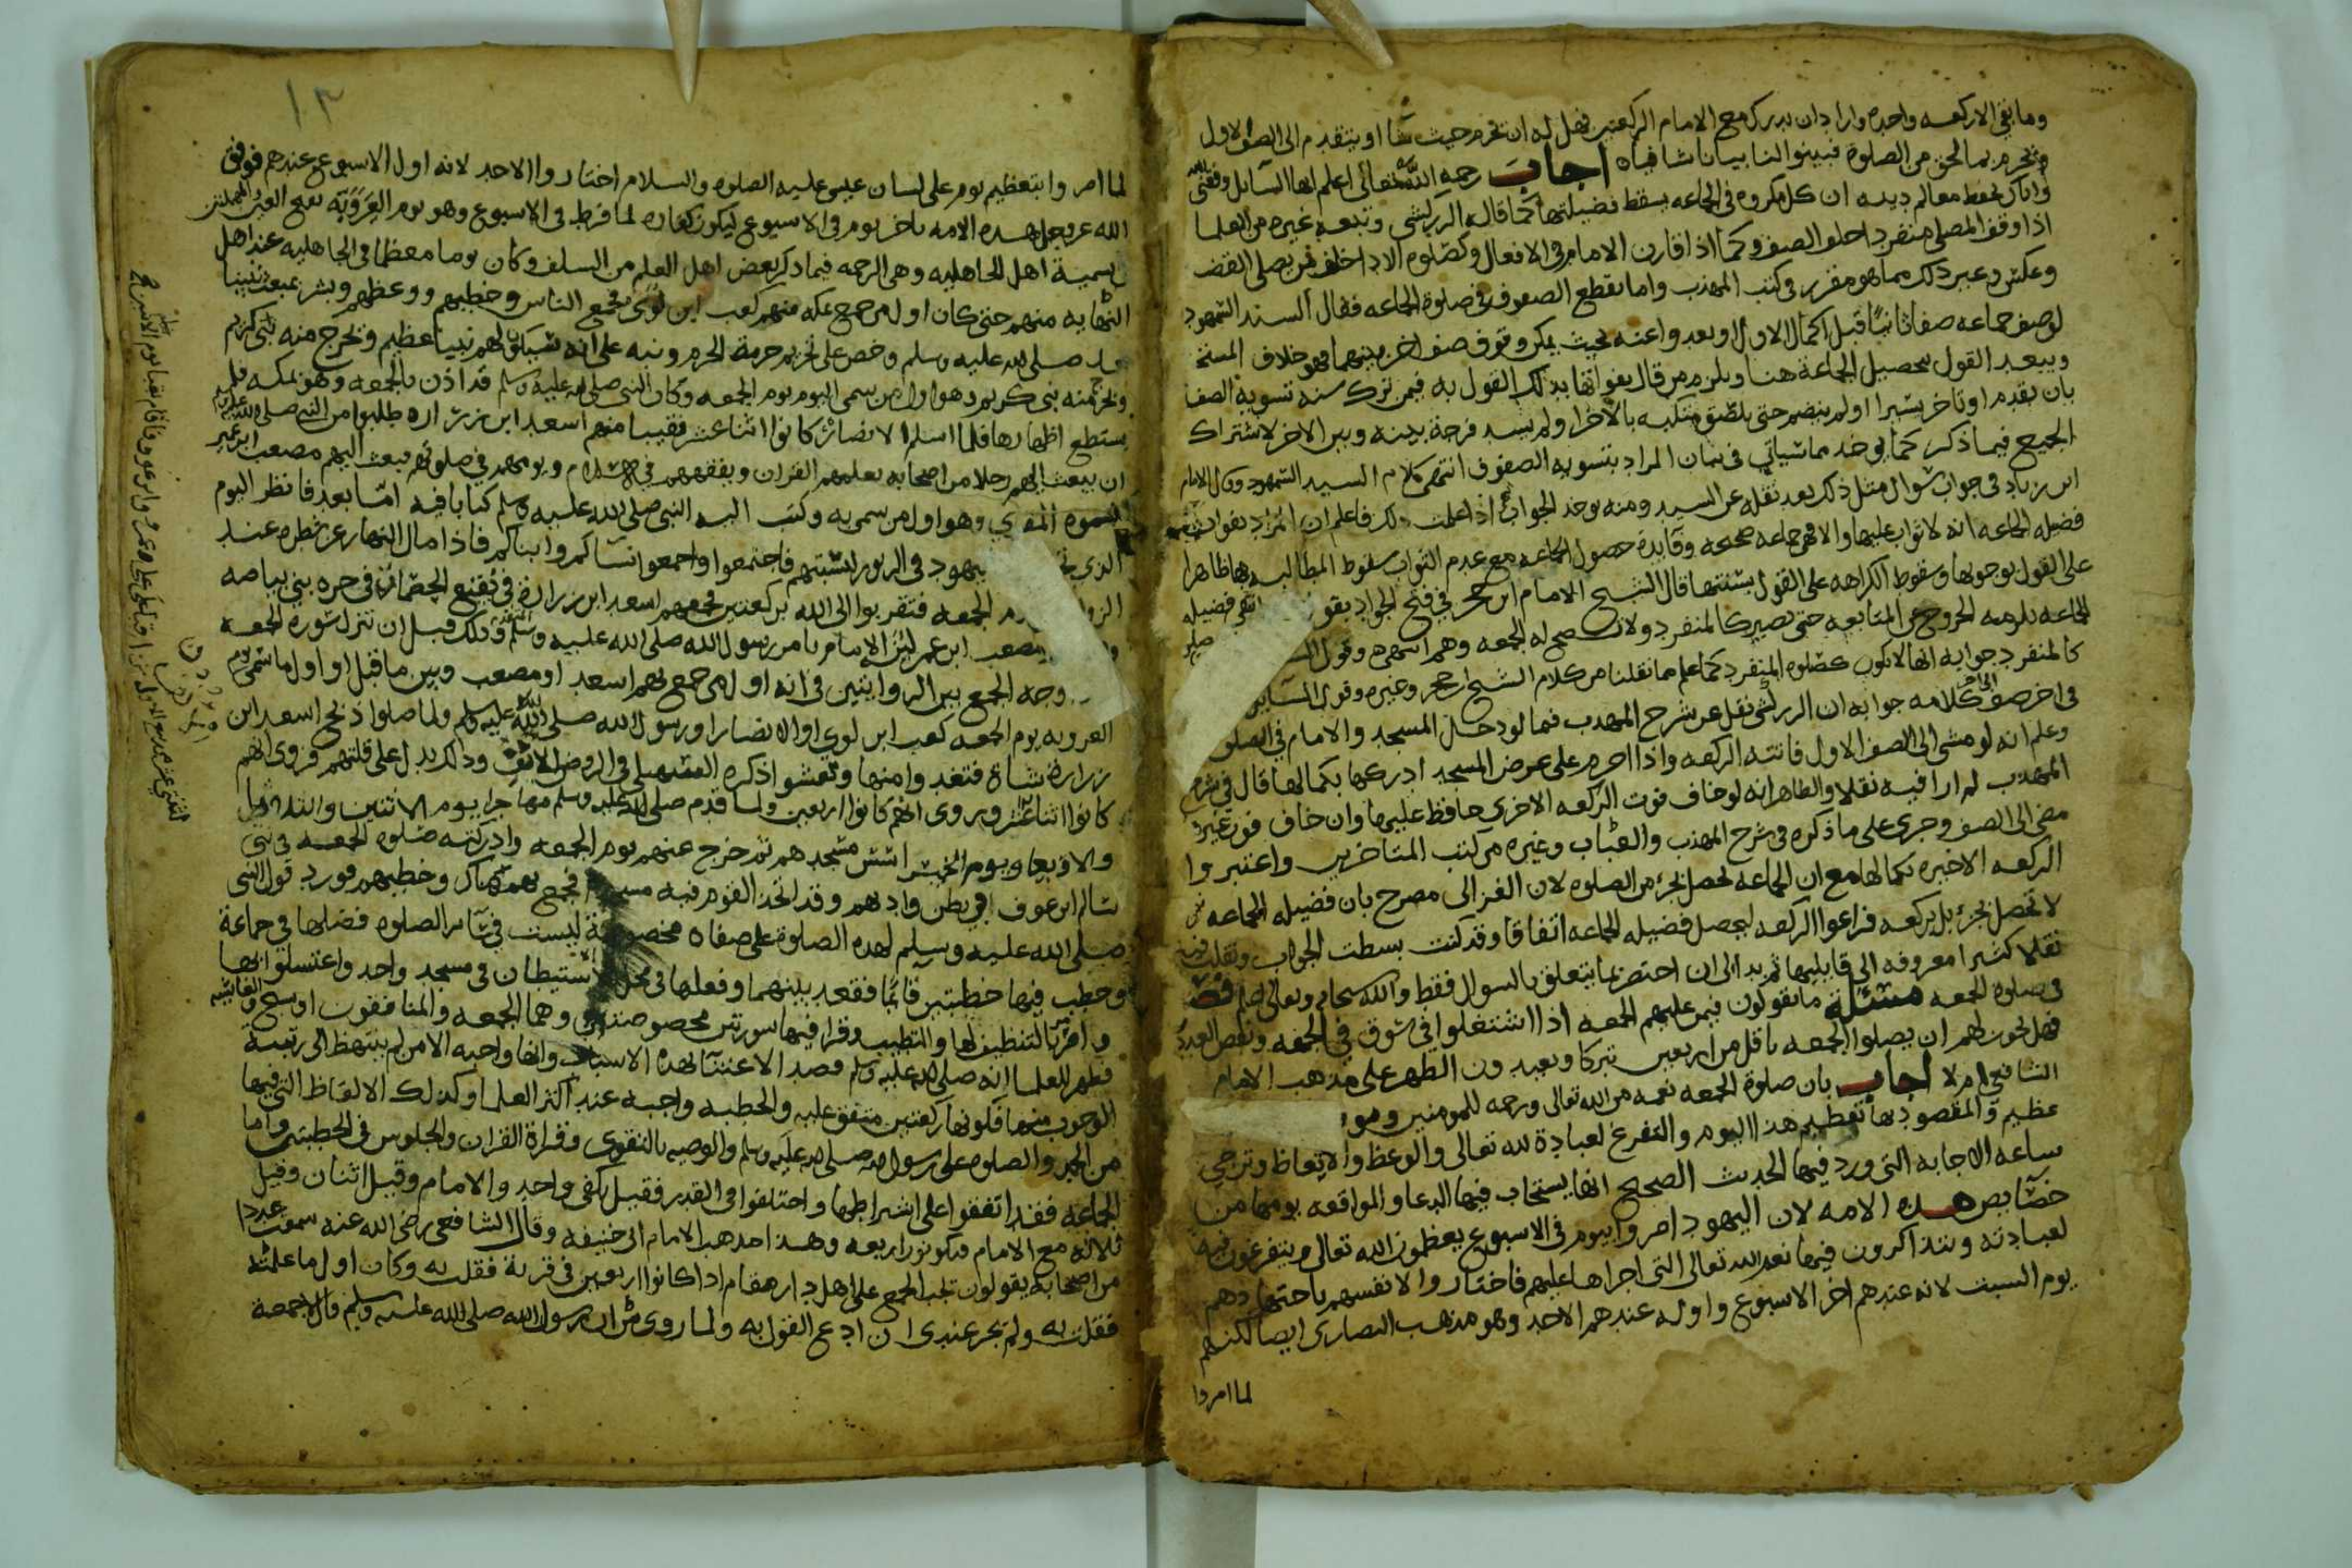 وما بقي الا ركعه واحده واراد ان يدرك مع الامام الركعتين فهل له ان يحرم حيث شا او يتقدم الى الصف الاول
ويحرم بما لحق من الصلوة فبينوا لنا بيانا شافياه اجاب رحمه الله تعالى اعلم ايها السايل وفقني الله
واياك لحفظ معالم دينه ان كل مكروه في الجماعه يسقط فضيلتها كما قاله الزركشي وتبعه غيره من العلما
اذا وقف المصلي منفردا خلف الصف وكما اذا قارن الامام في الافعال وكصلوه الادا خلف من يصلي القضـ
وعكسه وغير ذلك مما هو مقرر في كتب المهذب واما تقطع الصفوف في صلوة الجماعه فقال السيد السمهودي
لو صف جماعه صفا ثانيا قبل اكمال الاول او بعدوا عنه بحيث يمكن وقوف صف اخر بينهما فهو خلاف المستحـ
ويبعد القول بتحصيل الجماعة هنا ويلزم من قال بفواتها بذلك القول به فيمن ترك سنه تسوية الصف
بان تقدم او تاخر يسيرا او لم ينضم حتى يلصق منكبه بالاخر او لم يسد فرجة بينه وبين الاخر لاشتراك
الجميع فيما ذكر كما يوخذ مما سياتي في بيان المراد بتسويه الصفوف انتهى كلام السيد السمهودي وقال الامام
ابن زياد في جواب سوال مثل ذلك بعد نقله عن السيد ومنه يوخذ الجواب اذا علمت ذلك فاعلم ان المراد بفوات
فضيله الجماعه انه لا ثواب عليها والا فهي جماعه صحيحه وفايدة حصول الجماعه مع عدم الثواب سقوط المطالبه بها ظاهرا
على القول بوجوبها وسقوط الكراهه على القول بسنتها قال الشيخ الامام ابن حجر في فتح الجواد يفو
الجماعه يلزمه الخروج عن المتابعه حتى يصير كالمنفرد ولا تصح له الجمعه وهم انتهى وقول
كالمنفرد جوابه انها لا تكون كصلوه المنفرد كما علم مما نقلنا من كلام الشيخ ابن حجر وغيره وقول السايل
في اخر صف الى اخر كلامه جوابه ان الزركشي نقل عن شرح المهذب فيما لو دخل المسجد والامام في الصلوة
وعلم انه لو مشى الى الصف الاول فاتته الركعه واذا احرم على عرض المسجد ادركها بكمالها قال في شرح
المهذب لم ار فيه نقلا والظاهر انه لو خاف فوت الركعه الاخرى حافظ عليها وان خاف فوت غيرها
مضى الى الصف وجرى على ما ذكره في شرح المهذب والعباب وغيره من كتب المتاخرين واعتبروا
الركعه الاخيره بكمالها مع ان الجماعه تحصل بجزء من الصلوه لان الغزالى مصرح بان فضيله الجماعه
لا تحصل بجزء بل بركعه فراعوا الركعه ليحصل فضيله الجماعه اتفاقا وقد كنت بسطت الجواب ونقلت فيه
نقلا كثيرا معروفه الى قايليها ثم بدا لى ان اختصر بما يتعلق بالسوال فقط والله سبحانه وتعالى اعلم فصل
في صلوه الجمعه مسئلة ما تقولون فيمن عليهم الجمعه اذا اشتغلوا في سوق في الجمعه ونقص العدد
فهل يجوز لهم ان يصلوا الجمعه باقل من اربعين تبركا ويعيدون الظهر على مذهب الامام
الشافعي ام لا اجاب بان صلوة الجمعه نعمه من الله تعالى ورحمه للمومنين وهو
عظيم والمقصود بها تعظيم هذا اليوم والتفرغ لعبادة لله تعالى والوعظ والاتعاظ وترجي
ساعه الاجابه التي ورد فيها الحديث الصحيح انها يستجاب فيها الدعا والمواقعه يومها من
خصايص هذه الامه لان اليهود امروا بيوم في الاسبوع يعظمون الله تعالى ويتفرغون فيه
لعبادته ويتذاكرون فيها نعم الله تعالى التي اجراها عليهم فاختاروا لانفسهم باجتهادهم
يوم السبت لانه عندهم اخر الاسبوع واوله عندهم الاحد وهو مذهب النصارى ايضا لكنهم
لما امروا
١٣
لما امروا بتعظيم يوم على لسان عيسى عليه الصلوه والسلام اختاروا الاحد لانه اول الاسبوع عندهم فوفق
الله عز وجل هذه الامه باخر يوم في الاسبوع ليكون كفاره لما فرط في الاسبوع وهو يوم العروبه بفتح العين المهملتين
تسمية اهل الجاهليه وهي الرحمه فيما ذكر بعض اهل العلم من السلف وكان يوما معظما في الجاهليه عند اهل
النهايه منهم حتى كان اول من جمع بمكه منهم كعب ابن لوي فجمع الناس وخطبهم ووعظهم وبشر بمبعث نبينا
صلى الله عليه وسلم وحض على تحريم حرمة الحرم ونبه على انه سيكون لهم نبيا عظيم ويخرج منه نبي كريم
ويخرج منه نبي كريم وهو اول من سمى اليوم يوم الجمعه وكان النبي صلى الله عليه وسلم قد اذن بالجمعه وهو بمكه فلم
يستطع اظهارها فلما اسلم الانصار كانوا اثنا عشر نقيبا منهم اسعد ابن زراره طلبوا من النبي صلى الله عليه وسلم
ان يبعث اليهم رجلا من اصحابه يعلمهم القران ويفقههم في الاسلام ويومهم في صلوتهم فبعث اليهم مصعب ابن عمير
وهو اول من سمي به وكتب اليه النبي صلى الله عليه وسلم كتابا فيه اما بعد فانظر اليوم
الذي يهود في الزبور لسبتهم فاجتمعوا واجمعوا نساكم وابناكم فاذا مال النهار عن شطره عند
الزوال الجمعه فتقربوا الى الله بركعتين فجمعهم اسعد ابن زراره في نقيع الخضمات في حره بني بياضه
مصعب ابن عمير الامام بامر رسول الله صلى الله عليه وسلم وذلك قبل ان تنزل سورة الجمعه
وجه الجمع بين الروايتين في انه اول من جمع بهم اسعد او مصعب وبين ما قيل او اول ما سمي يوم
العروبه يوم الجمعه كعب ابن لوي او الانصار او رسول الله صلى الله عليه وسلم ولما صلوا ذبح اسعد ابن
زراره شاة فتغدوا منها وتعشوا ذكره السهيلي في الروض الانف وذاك يدل على قلتهم فروي انهم
كانوا اثنا عشر ويروى انهم كانوا اربعين ولما قدم صلى الله عليه وسلم مهاجرا يوم الاثنين والثلاثا
والاربعا ويوم الخميس اسس مسجدهم ثم خرج عنهم يوم الجمعه وادركته صلوه الجمعه في بني
سالم ابن عوف في بطن واديهم وقد اتخذ القوم فيه مسجدا فجمع بهم هناك وخطبهم فورد قول النبي
صلى الله عليه وسلم لهذه الصلوة على صفاه مخصوصة ليست في ساير الصلوه فضلها في جماعة
وخطب فيها خطبتين قايما فقعد بينهما وفعلها في محل الاستيطان في مسجد واحد واغتسلوا لها
وامر بالتنظيف لها والتطيب وقرا فيها سورتين مخصوصتين وهما الجمعه والمنافقون او سبح والغاشيه
فظهر للعلما انه صلى الله عليه وسلم قصد الاعتنا بهذه الاسباب وانها واجبه الا من لم ينتهض الى رتبة
الوجوب منها فكونها ركعتين متفق عليه والخطبه واجبه عند اكثر العلما وكذلك الالفاظ التي فيها
من الحمد والصلوه على رسول الله صلى الله عليه وسلم والوصيه بالتقوى وقراة القران والجلوس في الخطبتين واما
الجماعه فقد اتفقوا على اشتراطها واختلفوا في القدر فقيل يكفي واحد والامام وقيل اثنان وقيل
ثلاثه مع الامام فتكونون اربعه وهذا مذهب الامام ابى حنيفه وقال الشافعي رضي الله عنه سمعت عددا
من اصحابه يقولون تجب الجمع على اهل دار مقام اذا كانوا اربعين في قرية فقلت به وكان اول ما علمته
فقلت به ولم يجز عندي ان ادع القول به ولما روي ان رسول الله صلى الله عليه وسلم قال لا جمعة